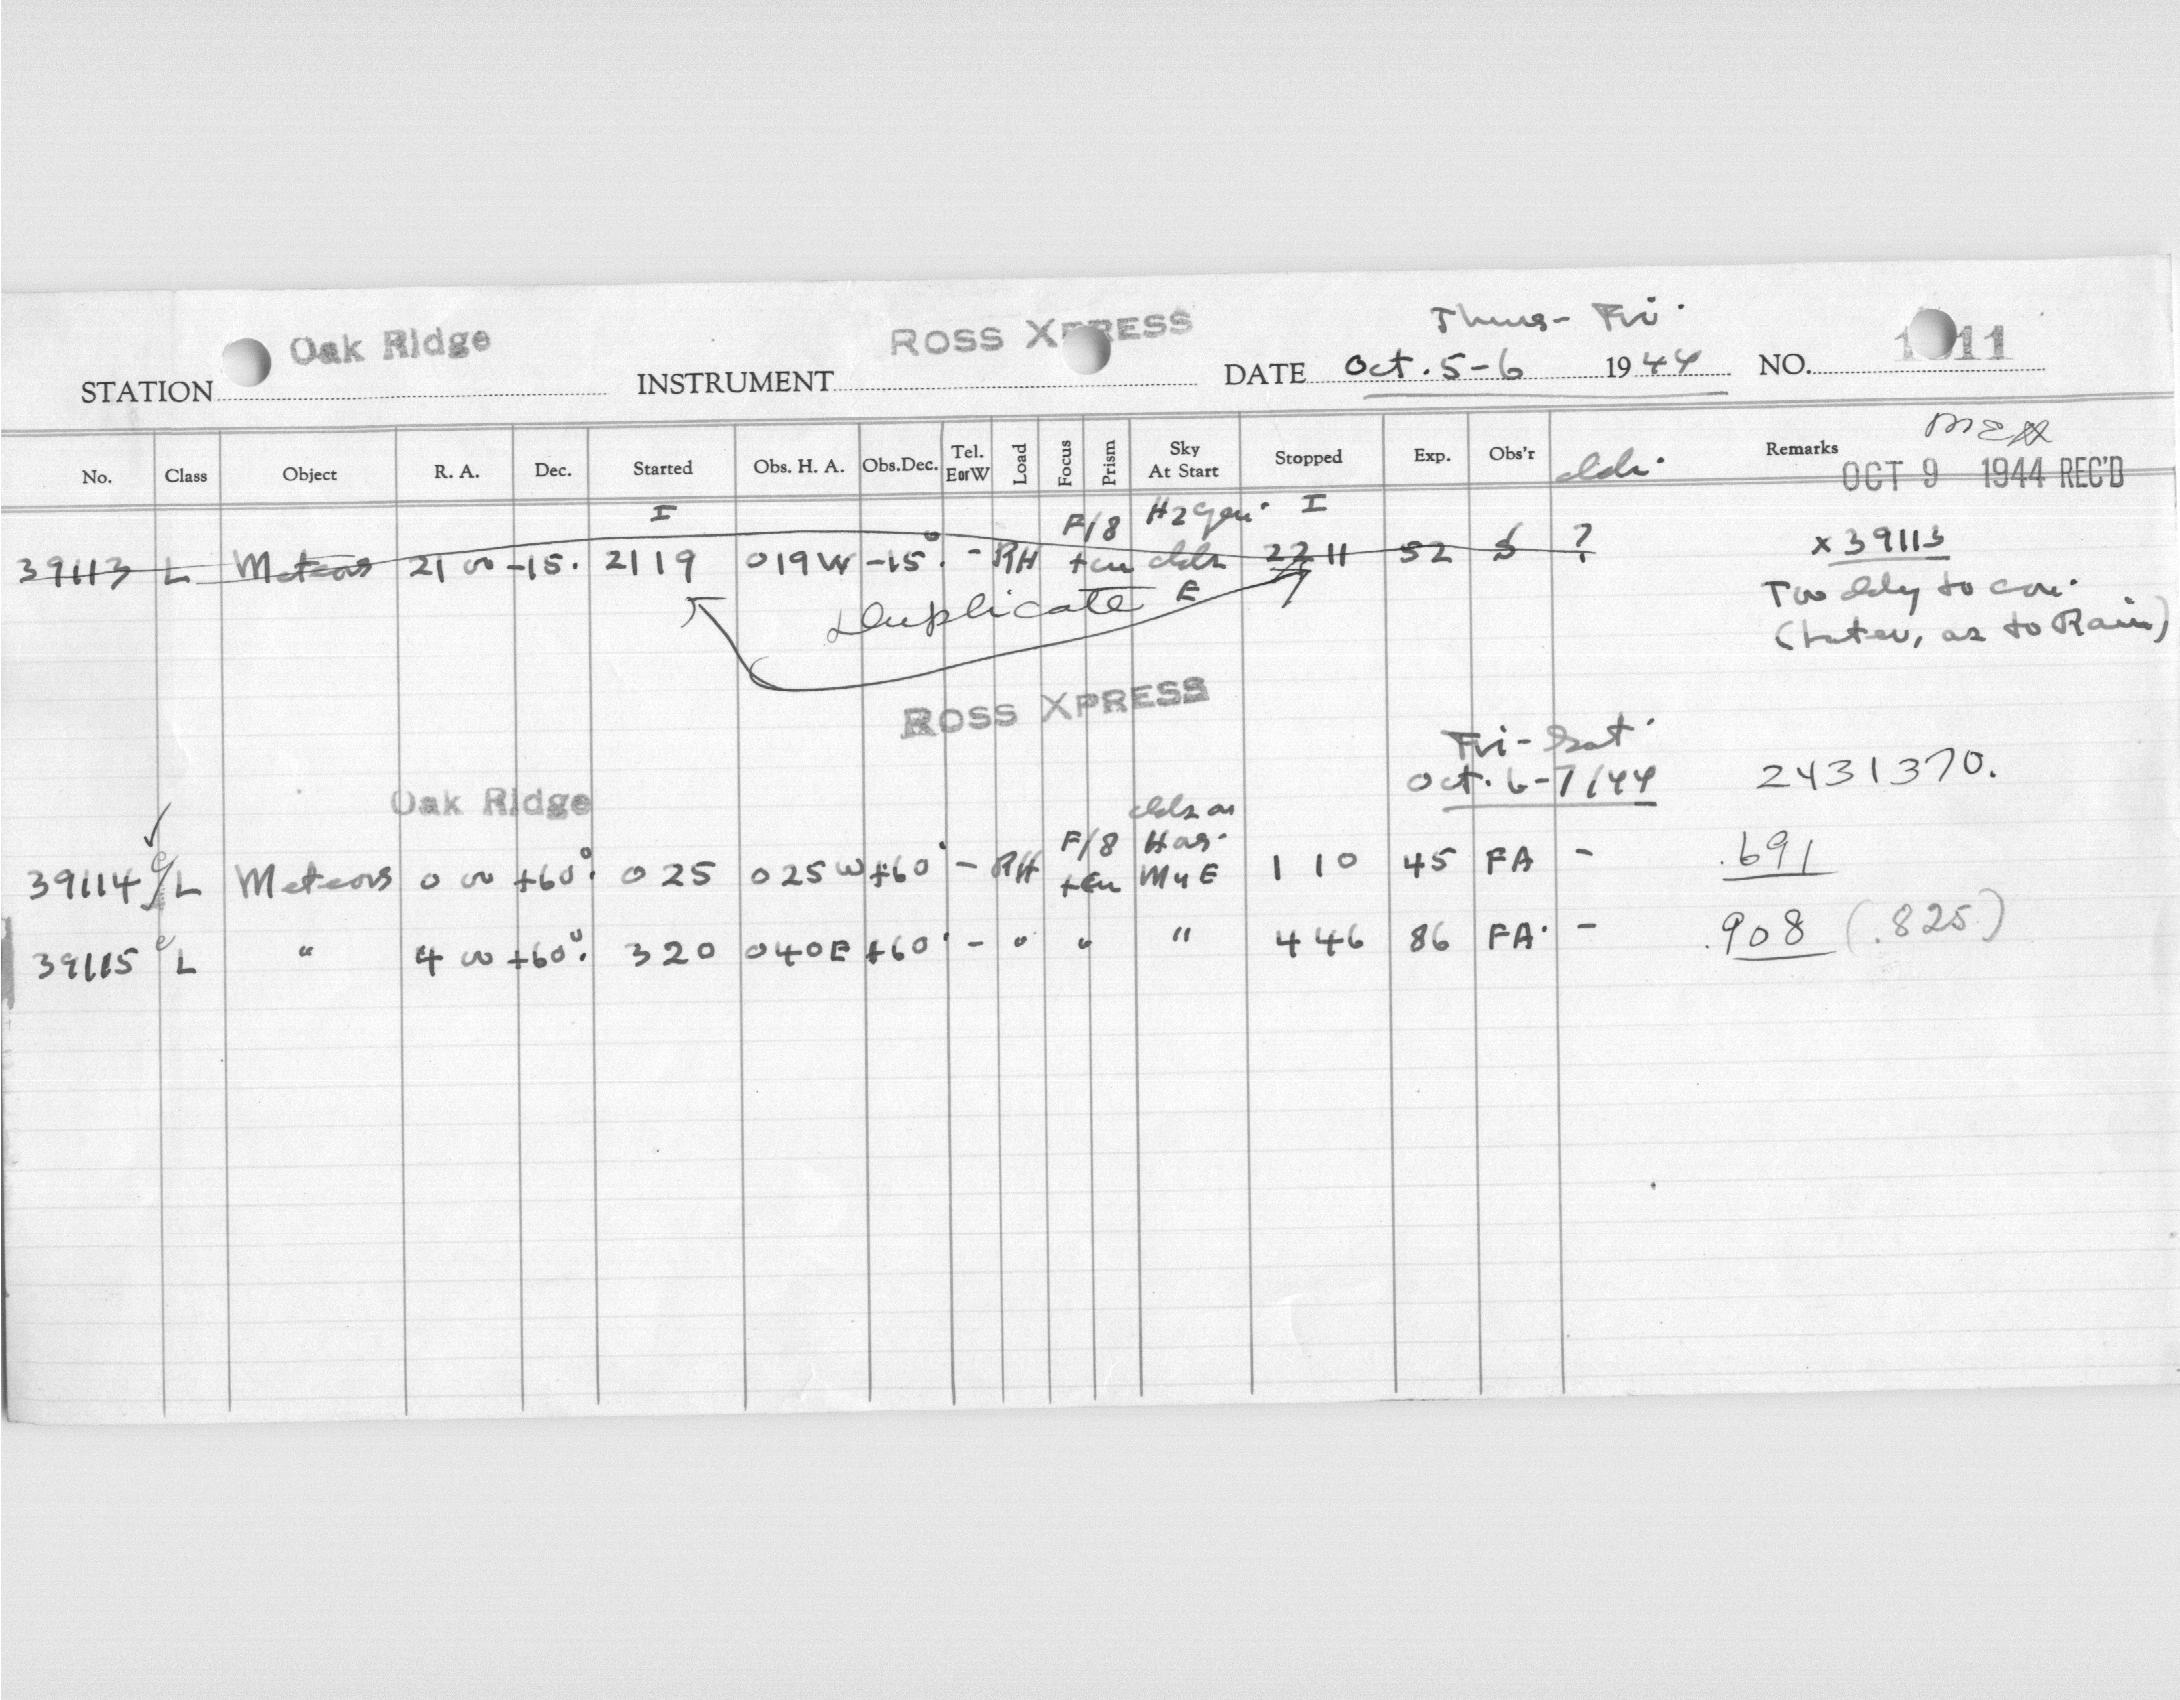 Thurs - Fri.
STATION Oak Ridge INSTRUMENT ROSS XPRESS DATE Oct. 5-6 1944 NO. 11
No. Class Object R. A. Dec. Started Obs. H. A. Obs.Dec. Tel. E or W Load Focus Prism Sky At Start Stopped Exp. Obs'r Remarks
OCT 9 1944 REC'D
I F/8 I
39113 L Meteors 21 00 -15. 2119 019W -15°. - RH 2211 52 S ? x 39113
Duplicate E Too cldy to
(Later, as to Rain)
ROSS XPRESS
Fri - Sat.
Oct. 6-7/44 2431370.
Oak Ridge
F/8
39114 L Meteors 0 00 +60°. 025 025W +60° - RH E 1 10 45 FA - .691
39115 e L " 4 00 +60°. 320 040E +60° - " " " 446 86 FA. - .908 (.825)